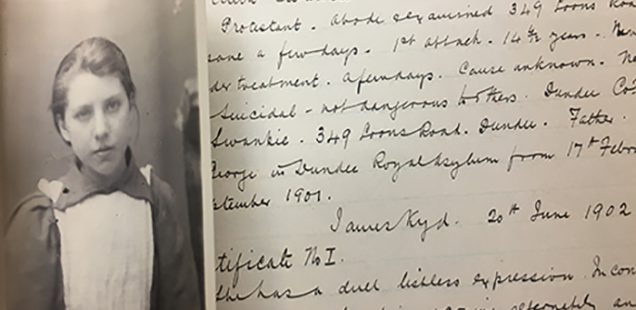 Protestant. Abode examined 349 Loons Road
a few days. 1st attack. 14½ years.
treatment. A few days. Cause unknown. No
Suicidal - not dangerous to others. Dundee
Swankie. 349 Loons Road. Dundee. Father.
George in Dundee Royal Asylum from 17th Febru
ptember 1901.
James Kyd. 20th June 1902
tificate No I.
She has a dull listless expression. Incon
alternately an